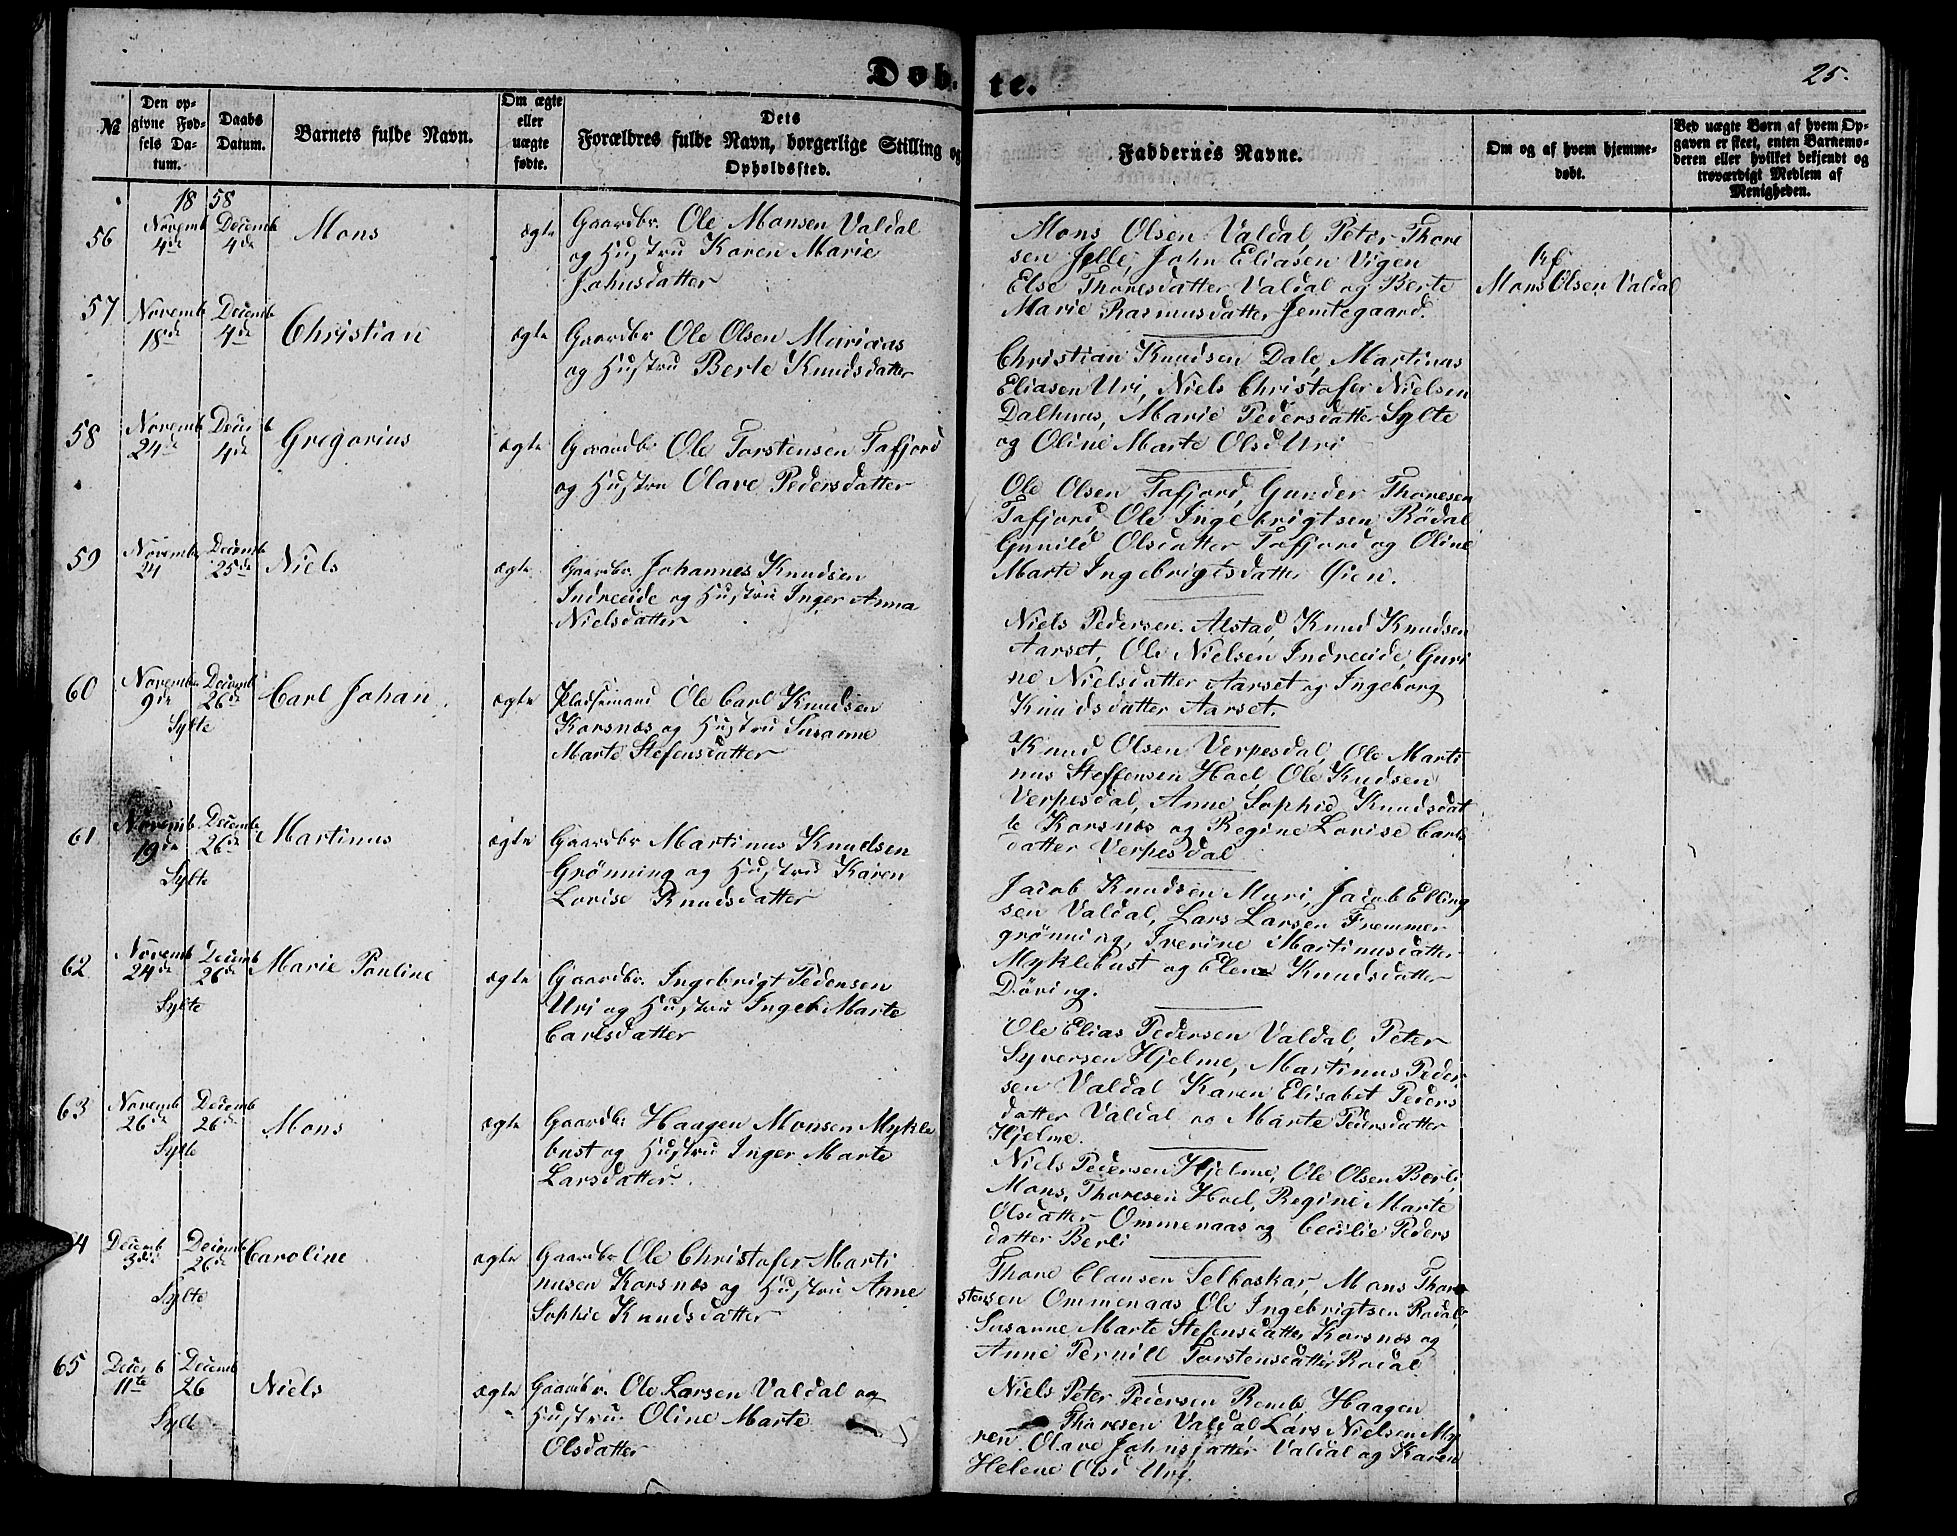 Døb-
te.
25.
№
Den op-
givne Fød-
sels Da-
tum.
Daabs
Datum.
Barnets fulde Navn.
Om ægte
eller
uægte
fødte.
Dets
Forældres fulde Navn, borgerlige Stilling og
Opholdssted.
Faddernes Navne.
Om og af hvem hjemme-
døbt.
Ved uægte Børn af hvem Op-
gaven er skeet, enten Barnemo-
deren eller hvilket bekjendt og
troværdigt Medlem af
Menigheden.
1858
56
Novemb
4de
Decemb
4de
Mons
ægte
Gaardbr. Ole Monsen Valdal
og Hustru Karen Marie
Johnsdatter
Mons Olsen Valdal, Peter Thore
sen Jelle, John Eliasen Vigen
Else Thoresdatter Valdal og Berte
Marie Rasmusdatter Jemtegaard.
Mons Olsen Valdal
57
Novemb
18de
Decemb
4de
Christian
ægte
Gaardbr Ole Olsen Muriaas
og Hustru Berte Knudsdatter
Christian Knudsen Dale, Martinus
Eliasen Uri, Niels Christofer Nielsen
Dalhuus, Marie Pedersdatter Sylte
og Oline Marte Olsd Uri
58
Novemb
24de
Decemb
4de
Gregorius
ægte
Gaardbr Ole Torstensen Tafjord
og Hustru Olave Pedersdatter
Ole Olsen Tafjord, Gunder Thoresen
Tafjord, Ole Ingebrigtsen Rødal
Gunild Olsdatter Tafjord og Oline
Marte Ingebrigtsdatter Øien.
59
Novemb
24
Decemb
25de
Niels
ægte
Gaardbr. Johannes Knudsen
Indreeide og Hustru Inger Anna
Nielsdatter
Niels Pedersen Alstad, Knud Knudsen
Aarset, Ole Nielsen Indreeide, Guri
ne Nielsdatter Aarset og Ingeborg
Knudsdatter Aarset.
60
Novemb
9de
Decemb
26de
Sylte
Carl Johan
ægte
Pladsemand Ole Carl Knudsen
Korsnæs og Hustru Susanne
Marte Stefensdatter
Knud Olsen Verpesdal, Ole Marti
nus Steffensen Hoel, Ole Knudsen
Verpesdal, Anne Sophie Knudsdat
te Korsnæs og Regine Lovise Carls
datter Verpesdal
61
Novemb
19de
Decemb
26de
Sylte
Martinus
ægte
Gaardbr Martinus Knudsen
Grønning og Hustru Karen
Lovise Knudsdatter
Jacob Knudsen Muri, Jacob Elling
sen Valdal, Lars Larsen Fremmer
grønning, Iverine Martinusdatter
Myklebust og Elene Knudsdatter
Døving.
62
Novemb
24de
Decemb
26de
Sylte
Marie Pauline
ægte
Gaardbr. Ingebrigt Pedersen
Uri og Hustru Ingeb Marte
Carlsdatter
Ole Elias Pedersen Valdal, Peter
Syversen Hjelme, Martinus Peder
sen Valdal Karen Elisabet Peders
datter Valdal og Marte Pedersdatter
Hjelme.
63
Novemb
26de
Decemb
26de
Sylte
Mons
ægte
Gaardb: Haagen Monsen Mykle
bust og Hustru Inger Marte
Larsdatter
Niels Pedersen Hjelme, Ole Olsen Berli
Mons Thoresen Hoel, Regine Marte
Olsdatter Ommenaas og Cecilie Peders
datter Berli
4
Decemb
3die
Decemb
26de
Sylte
Caroline
ægte
Gaardbr Ole Christofer Marti
nusen Korsnæs og Hustru Anne
Sophie Knudsdatter
Thore Clausen Selboskar, Mons Thor
stensen Ommenaas Ole Ingebrigtsen Rødal,
Susanne Marte Stefensdatter Korsnæs og
Anne Pernill Torstensdatter Rødal
65
Decemb
11te
Decemb
26
Sylte
Niels
ægte
Gaardbr. Ole Larsen Valdal og
Hustru Oline Marte
Olsdatter
Niels Peter Pedersen Remb Haagen
Thoresen Valdal Lars Nielsen My
ren Olave Johnsdatter Valdal og Karen
Helene Olsd Uri